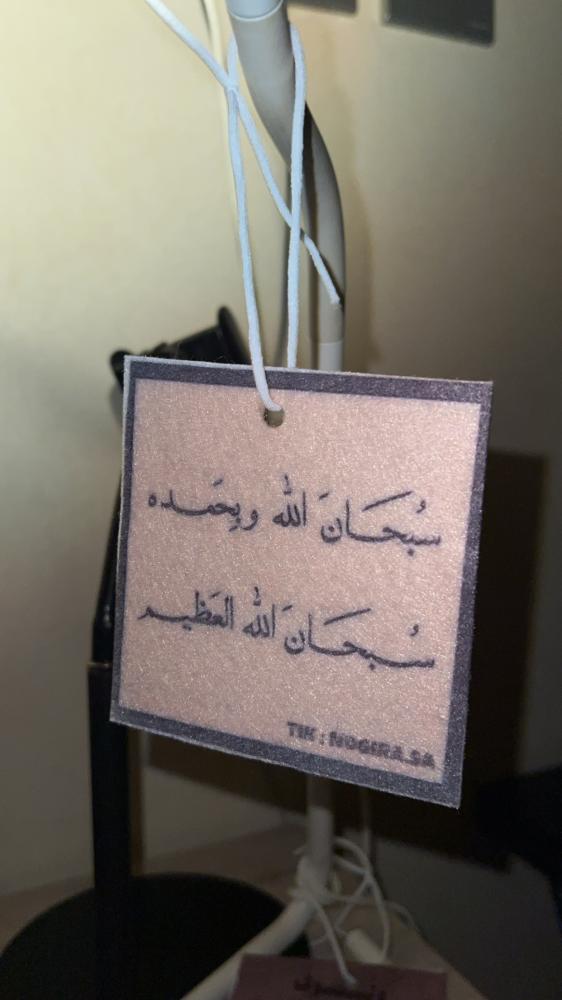 سُبحَانَ الله وبِحَمده
سُبحَانَ الله العَظيم
TIK : NOGIRA.SA